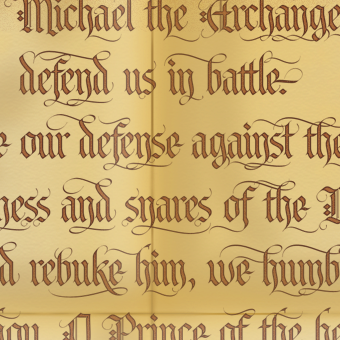 Michael the Archange
defend us in battle.
e our defense against the
ness and snares of the D
d rebuke him, we humb
hou, O Prince of the he